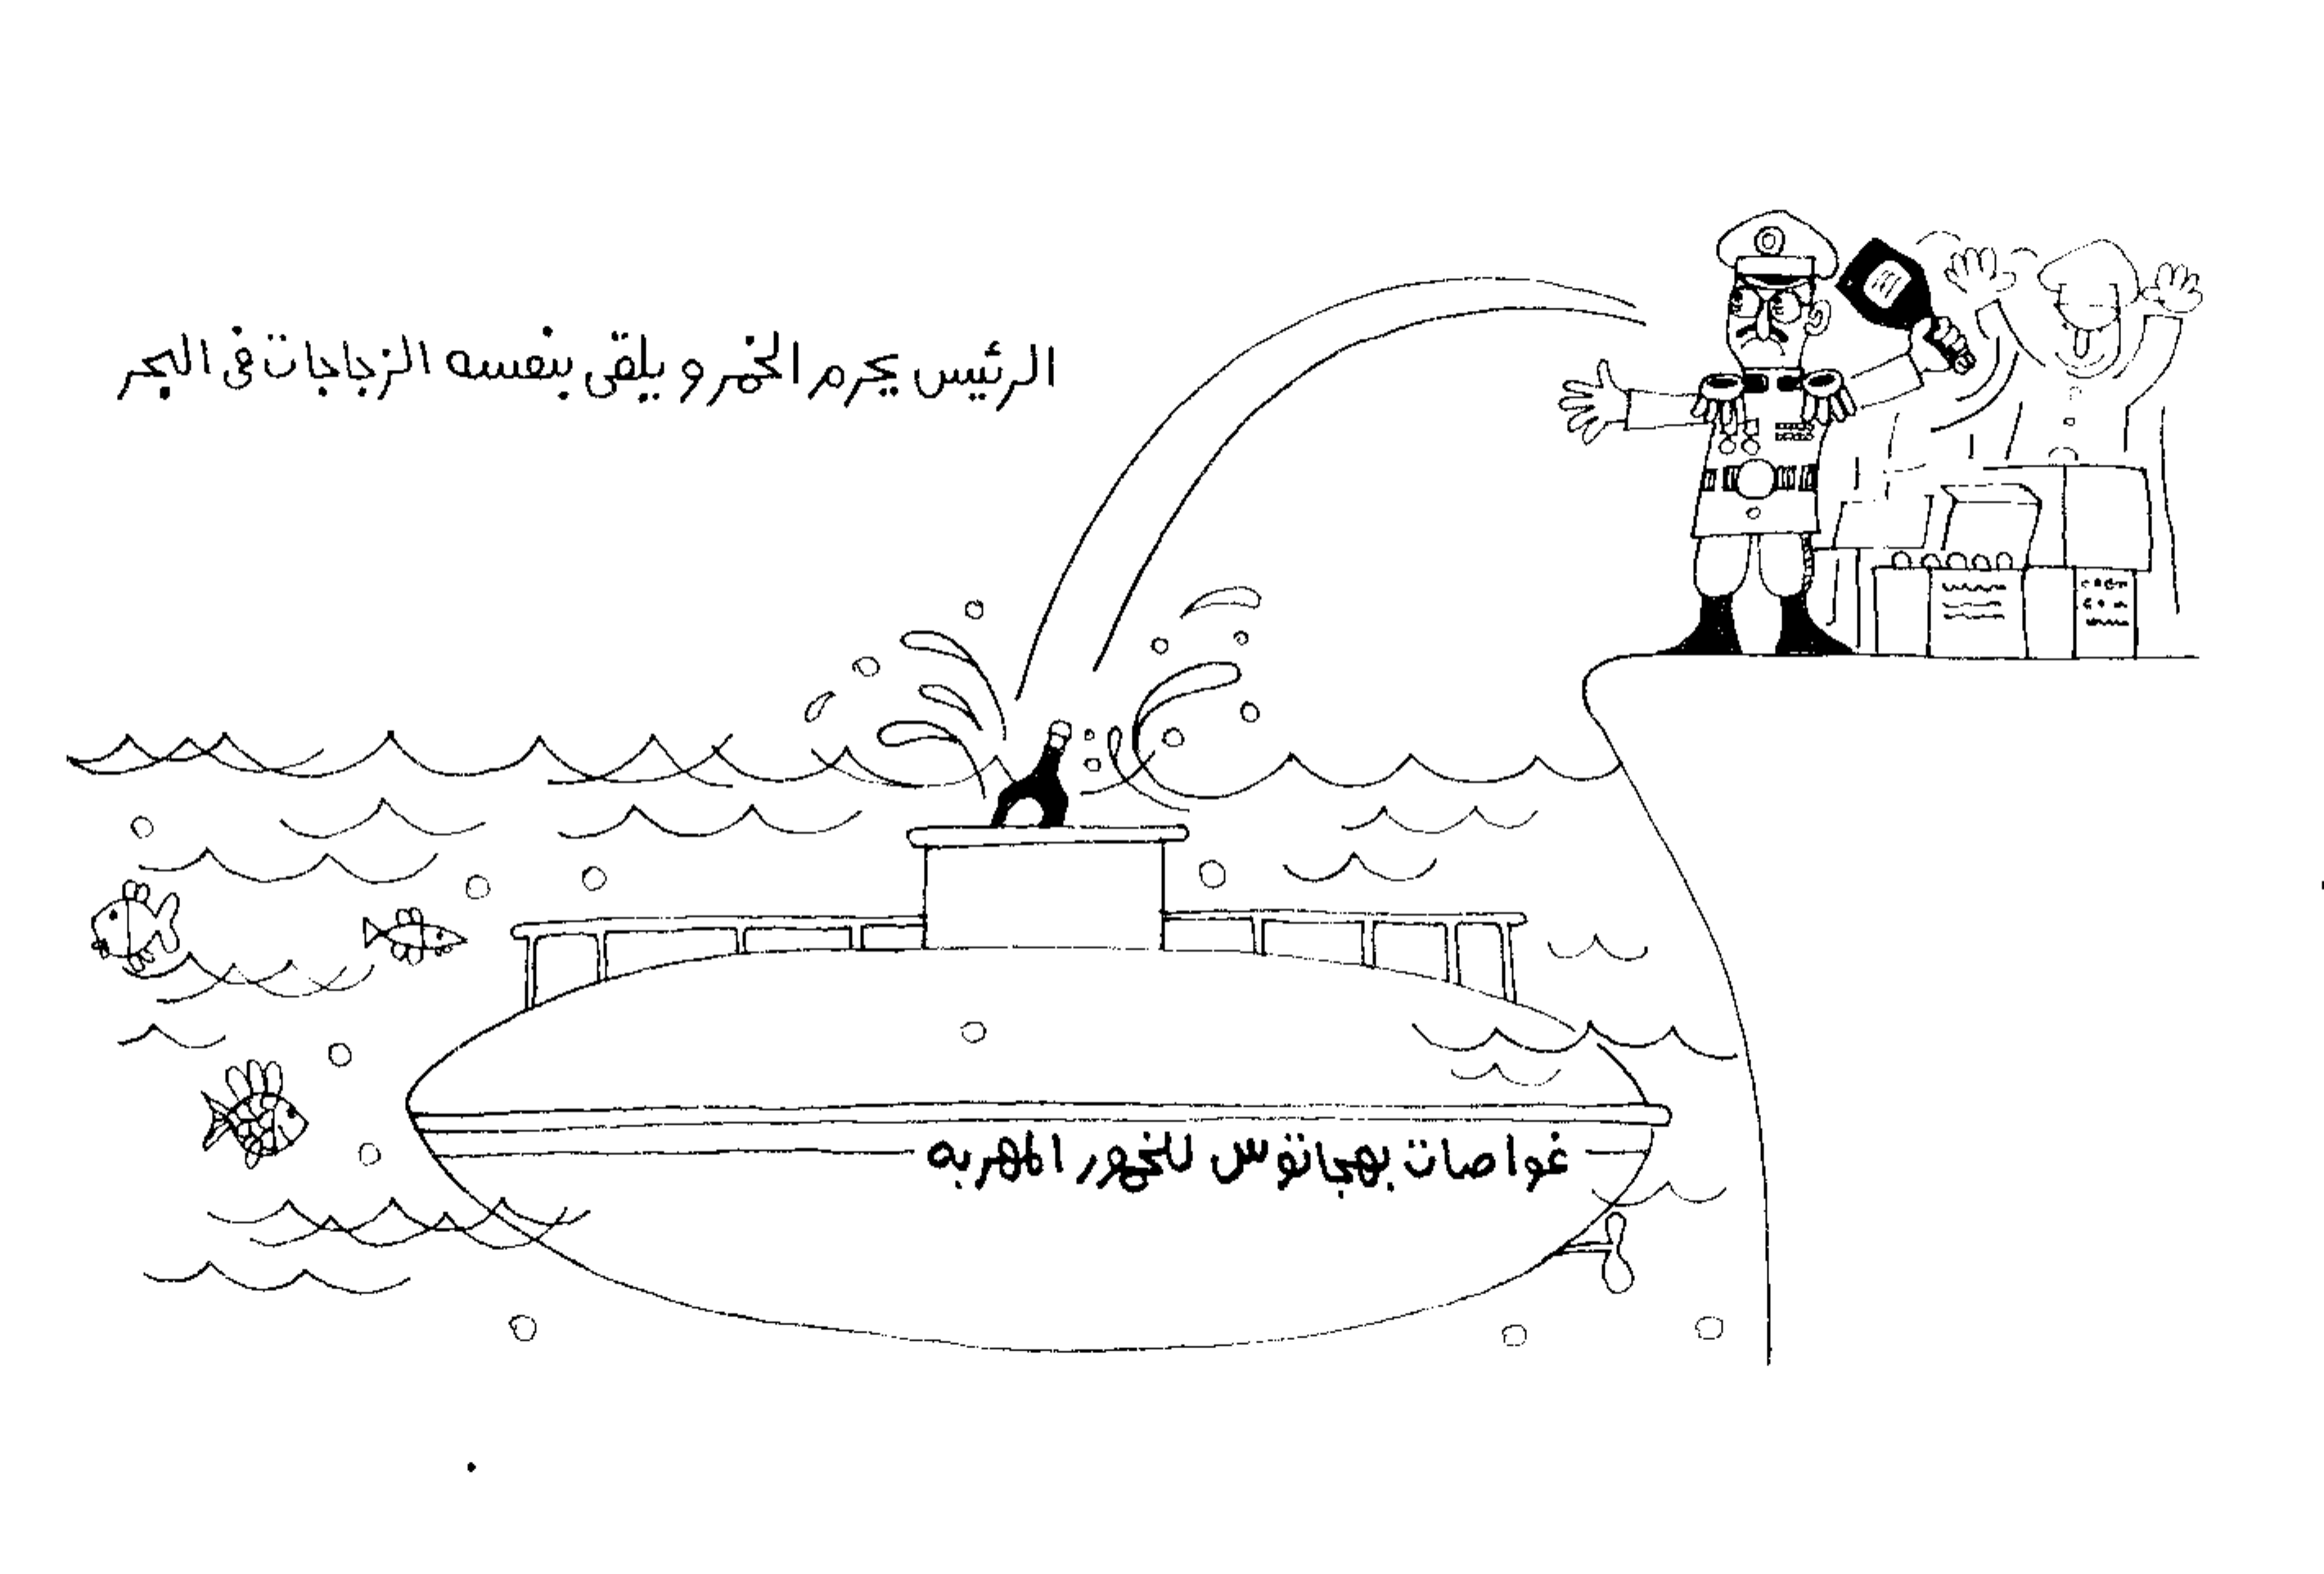 الرئيس يحرم الخمر و يلقى بنفسه الزجاجات فى البحر
غواصات بهجاتوس للخمور المهربه